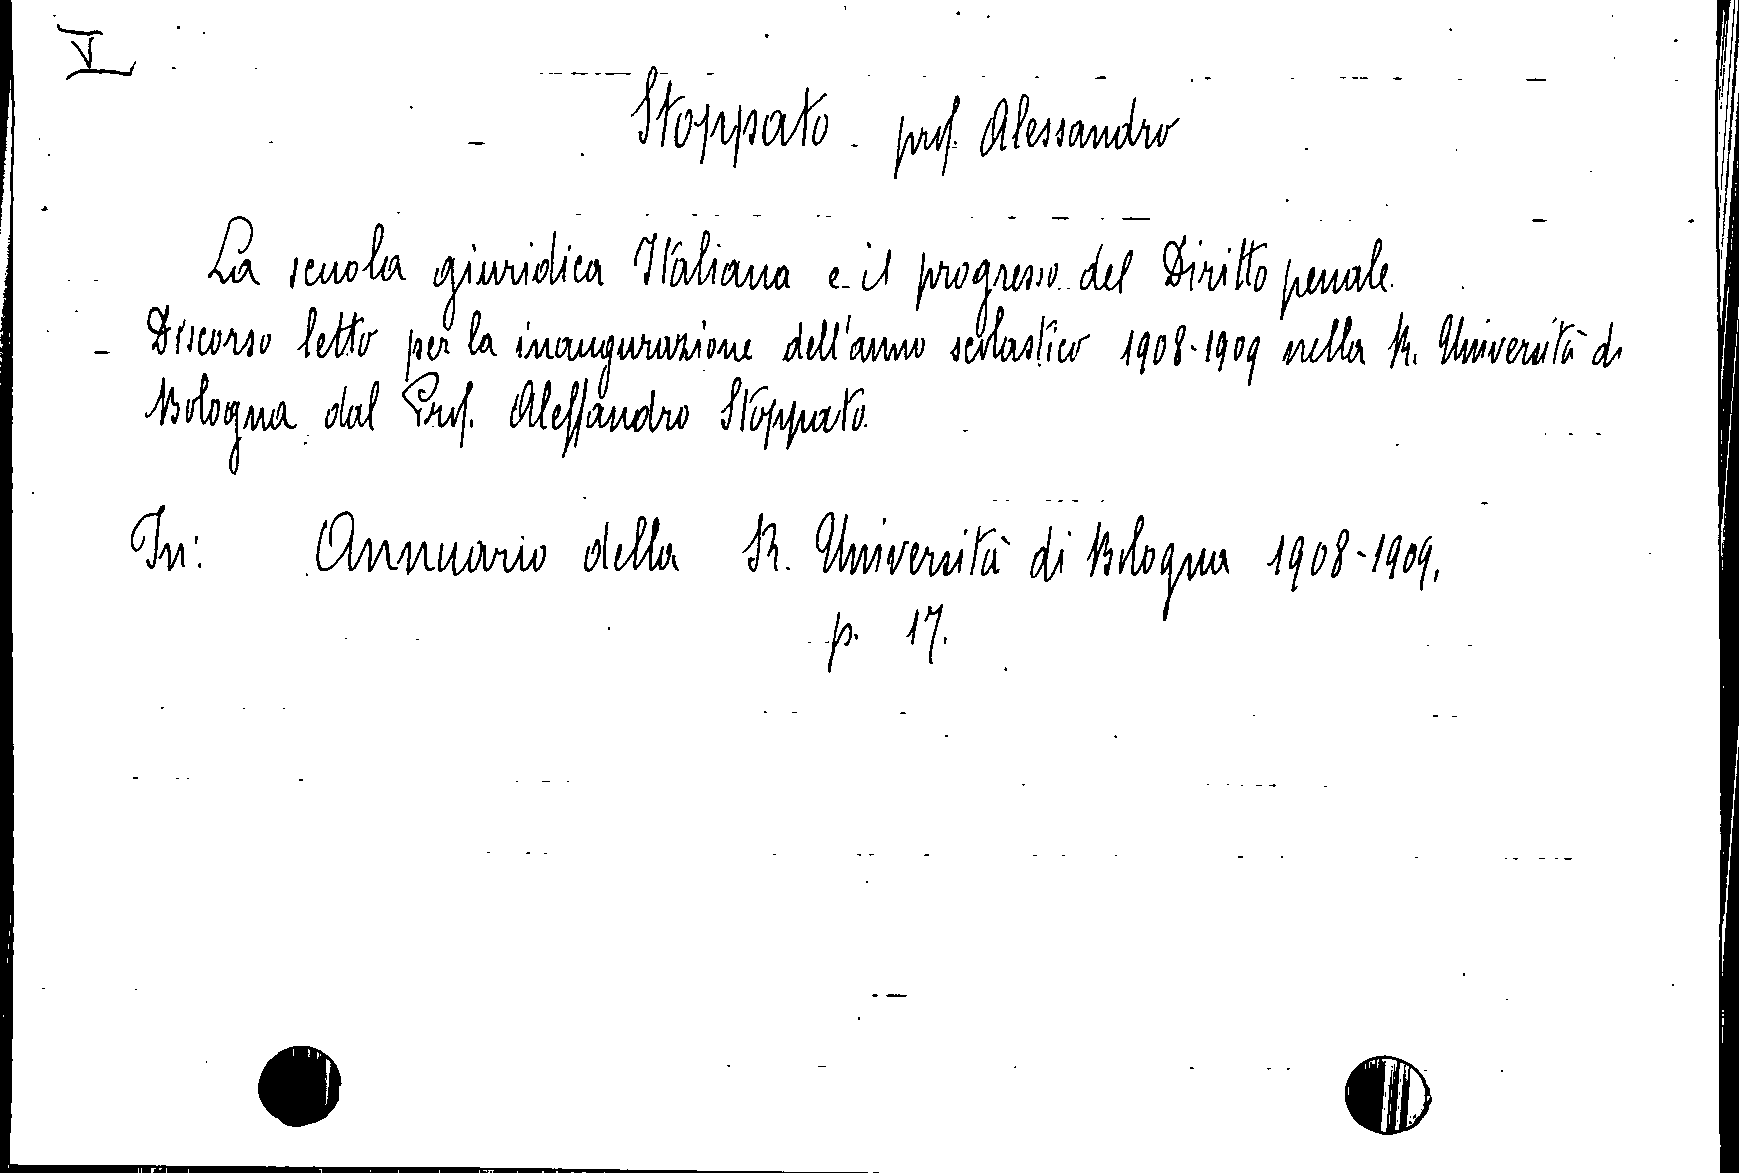 V
Stoppato prof. Alessandro
La scuola giuridica Italiana e il progresso del Diritto penale.
Discorso letto per la inaugurazione dell'anno scolastico 1908-1909 nella R. Università di
Bologna dal Prof. Alessandro Stoppato.
In: Annuario della R. Università di Bologna 1908-1909.
p. 17.